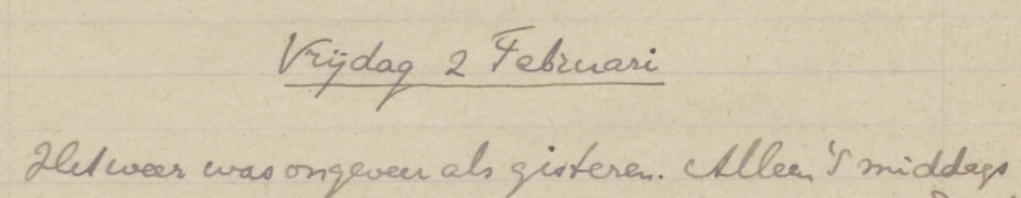 Vrijdag 2 Februari
Het weer was ongeveer als gisteren. Alleen 's middags